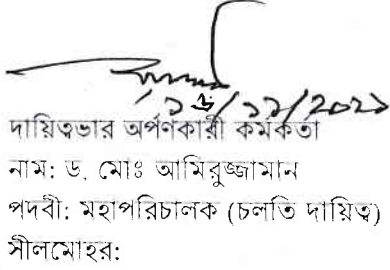 ১৮/১১/২০২১
দায়িত্বভার অর্পণকারী কর্মকর্তা
নাম: ড. মোঃ আমিরুজ্জামান
পদবী: মহাপরিচালক (চলতি দায়িত্ব)
সীলমোহর: